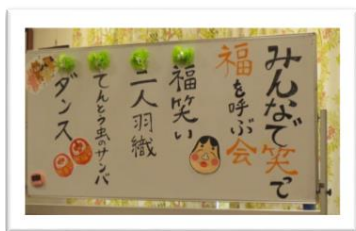 みんなで笑って
福を呼ぶ会
福笑い
二人羽織
てんとう虫のサンバ
ダンス